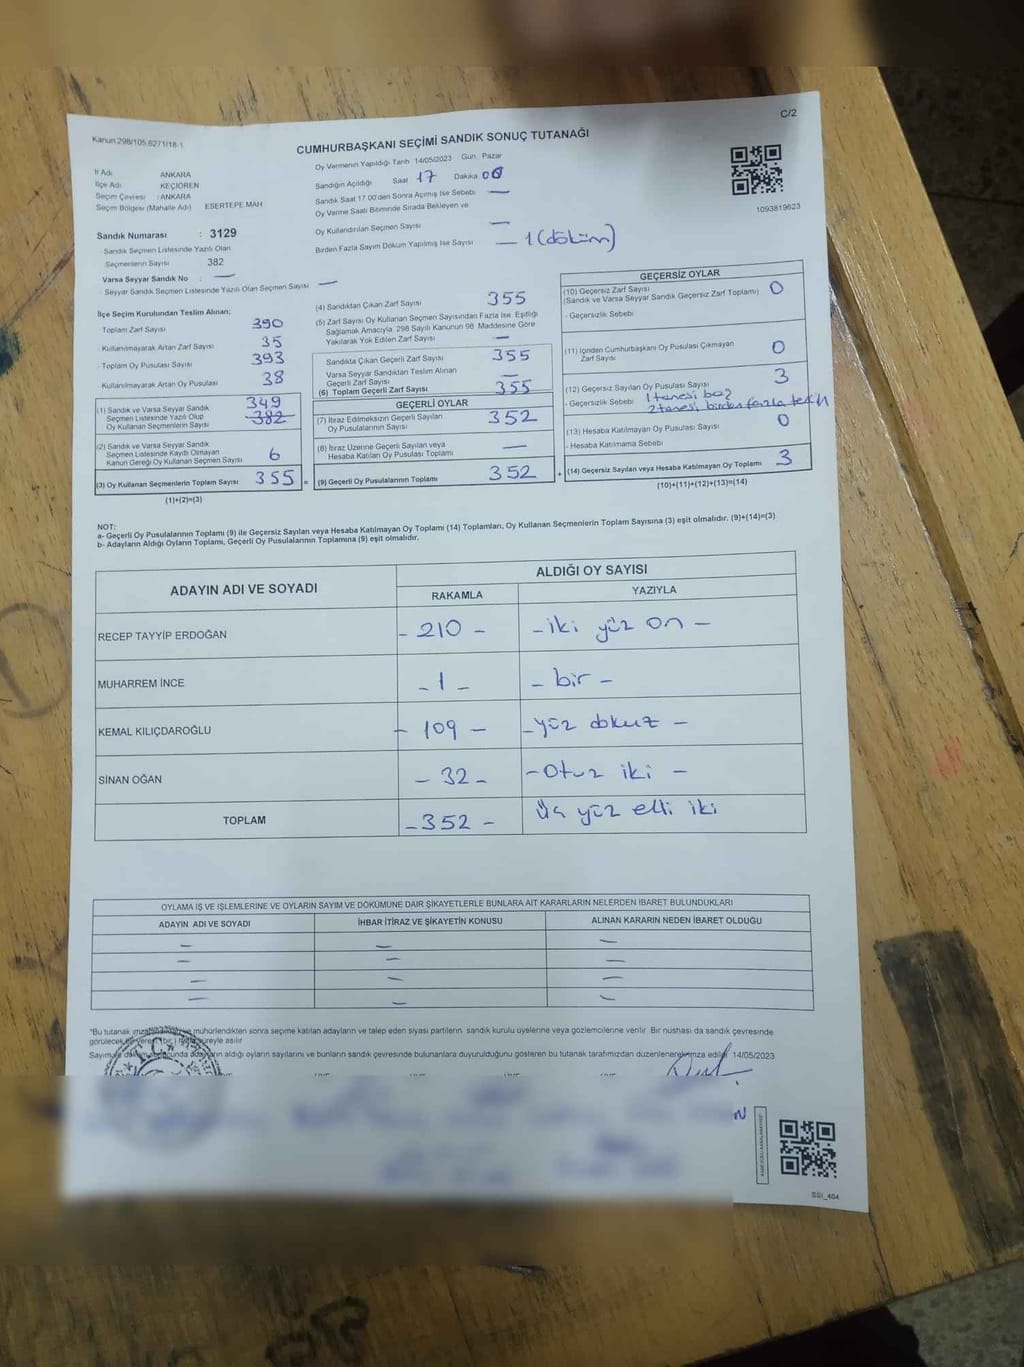 C/2
Kanun 298/105,6271/18-1
CUMHURBAŞKANI SEÇİMİ SANDIK SONUÇ TUTANAĞI
İl Adı ANKARA
İlçe Adı KEÇİÖREN
Seçim Çevresi : ANKARA
Seçim Bölgesi (Mahalle Adı) ESERTEPE MAH
Sandık Numarası : 3129
Sandık Seçmen Listesinde Yazılı Olan
Seçmenlerin Sayısı 382
Varsa Seyyar Sandık No : —
Seyyar Sandık Seçmen Listesinde Yazılı Olan Seçmen Sayısı —
Oy Vermenin Yapıldığı Tarih 14/05/2023 Gün Pazar
Sandığın Açıldığı Saat 17 Dakika 00
Sandık Saat 17.00'den Sonra Açılmış İse Sebebi —
Oy Verme Saati Bitiminde Sırada Bekleyen ve
Oy Kullandırılan Seçmen Sayısı —
Birden Fazla Sayım Döküm Yapılmış İse Sayısı — 1 (döküm)
1093819623
İlçe Seçim Kurulundan Teslim Alınan;
Toplam Zarf Sayısı 390
Kullanılmayarak Artan Zarf Sayısı 35
Toplam Oy Pusulası Sayısı 393
Kullanılmayarak Artan Oy Pusulası 38
(1) Sandık ve Varsa Seyyar Sandık 349
Seçmen Listesinde Yazılı Olup 382
Oy Kullanan Seçmenlerin Sayısı
(2) Sandık ve Varsa Seyyar Sandık
Seçmen Listesinde Kayıtlı Olmayan
Kanun Gereği Oy Kullanan Seçmen Sayısı 6
(3) Oy Kullanan Seçmenlerin Toplam Sayısı 355 =
(1)+(2)=(3)
(4) Sandıktan Çıkan Zarf Sayısı 355
(5) Zarf Sayısı Oy Kullanan Seçmen Sayısından Fazla İse, Eşitliği
Sağlamak Amacıyla, 298 Sayılı Kanunun 98. Maddesine Göre
Yakılarak Yok Edilen Zarf Sayısı —
Sandıkta Çıkan Geçerli Zarf Sayısı 355
Varsa Seyyar Sandıktan Teslim Alınan
Geçerli Zarf Sayısı —
(6) Toplam Geçerli Zarf Sayısı 355
GEÇERLİ OYLAR
(7) İtiraz Edilmeksizin Geçerli Sayılan
Oy Pusulalarının Sayısı 352
(8) İtiraz Üzerine Geçerli Sayılan veya
Hesaba Katılan Oy Pusulası Toplamı —
(9) Geçerli Oy Pusulalarının Toplamı 352 +
GEÇERSİZ OYLAR
(10) Geçersiz Zarf Sayısı 0
(Sandık ve Varsa Seyyar Sandık Geçersiz Zarf Toplamı)
- Geçersizlik Sebebi
(11) İçinden Cumhurbaşkanı Oy Pusulası Çıkmayan
Zarf Sayısı 0
(12) Geçersiz Sayılan Oy Pusulası Sayısı 3
- Geçersizlik Sebebi 1 tanesi boş
2 tanesi birden fazla tercih
(13) Hesaba Katılmayan Oy Pusulası Sayısı 0
- Hesaba Katılmama Sebebi
(14) Geçersiz Sayılan veya Hesaba Katılmayan Oy Toplamı 3
(10)+(11)+(12)+(13)=(14)
NOT:
a- Geçerli Oy Pusulalarının Toplamı (9) ile Geçersiz Sayılan veya Hesaba Katılmayan Oy Toplamı (14) Toplamları, Oy Kullanan Seçmenlerin Toplam Sayısına (3) eşit olmalıdır. (9)+(14)=(3)
b- Adayların Aldığı Oyların Toplamı, Geçerli Oy Pusulalarının Toplamına (9) eşit olmalıdır.
ADAYIN ADI VE SOYADI ALDIĞI OY SAYISI
RAKAMLA YAZIYLA
RECEP TAYYİP ERDOĞAN - 210 - - iki yüz on -
MUHARREM İNCE - 1 - - bir -
KEMAL KILIÇDAROĞLU - 109 - - yüz dokuz -
SİNAN OĞAN - 32 - - Otuz iki -
TOPLAM - 352 - Üç yüz elli iki
OYLAMA İŞ VE İŞLEMLERİNE VE OYLARIN SAYIM VE DÖKÜMÜNE DAİR ŞİKAYETLERLE BUNLARA AİT KARARLARIN NELERDEN İBARET BULUNDUKLARI
ADAYIN ADI VE SOYADI İHBAR İTİRAZ VE ŞİKAYETİN KONUSU ALINAN KARARIN NEDEN İBARET OLDUĞU
— — —
— — —
— — —
— — —
*Bu tutanak mühürlendikten sonra seçime katılan adayların ve talep eden siyasi partilerin sandık kurulu üyelerine veya gözlemcilerine verilir. Bir nüshası da sandık çevresinde
görülecek bir yere süreyle asılır
adayların aldığı oyların sayılarını ve bunların sandık çevresinde bulunanlara duyurulduğunu gösteren bu tutanak tarafımızdan düzenlenerek imza edildi 14/05/2023
T.C.
N
SSI_404